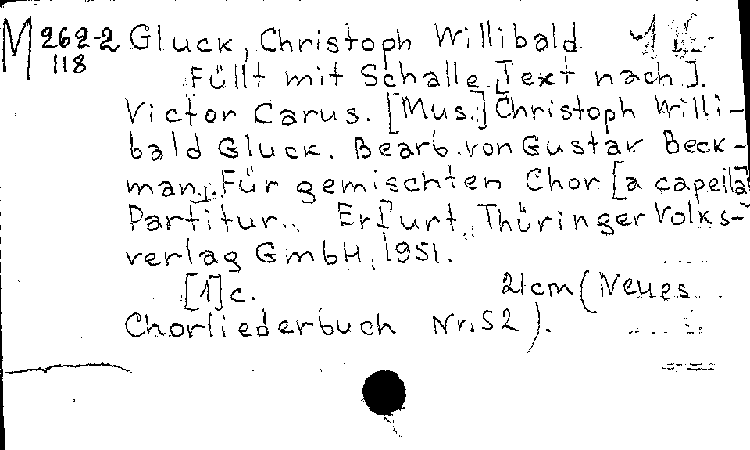 M 262-2 Gluck, Christoph Willibald
118 Füllt mit Schalle [Text nach].
Victor Carus. [Mus.] Christoph Willi-
bald Gluck. Bearb. von Gustav Beck-
man. Für gemischten Chor [a capella]
Partitur. Erfurt, Thüringer Volks-
verlag GmbH, 1951.
[1] c. 21 cm (Neues
Chorliederbuch Nr. 52).